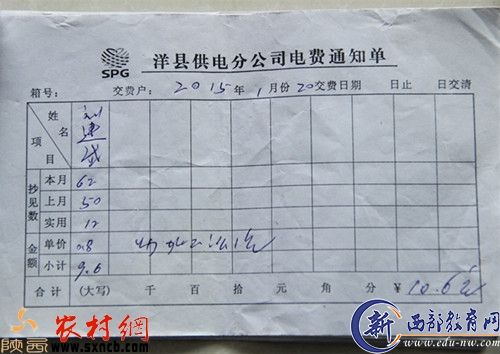 SPG
洋县供电分公司电费通知单
箱号: 交费户: 2015年 1月份 20交费日期 日止 日交清
姓名
项目
刘
抄见数 本月 62
上月 50
实用 12
金额 单价 0.8
小计 9.6
合计 (大写) 千 百 拾 元 角 分 ¥ 10.6元
陕西农村網
www.sxncb.com
新 西部教育网
www.edu-nw.com